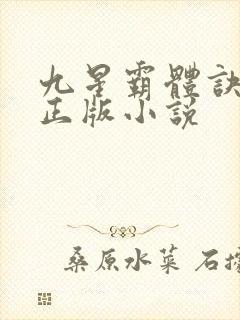 九星霸體訣
正版小説
桑原水菜 石